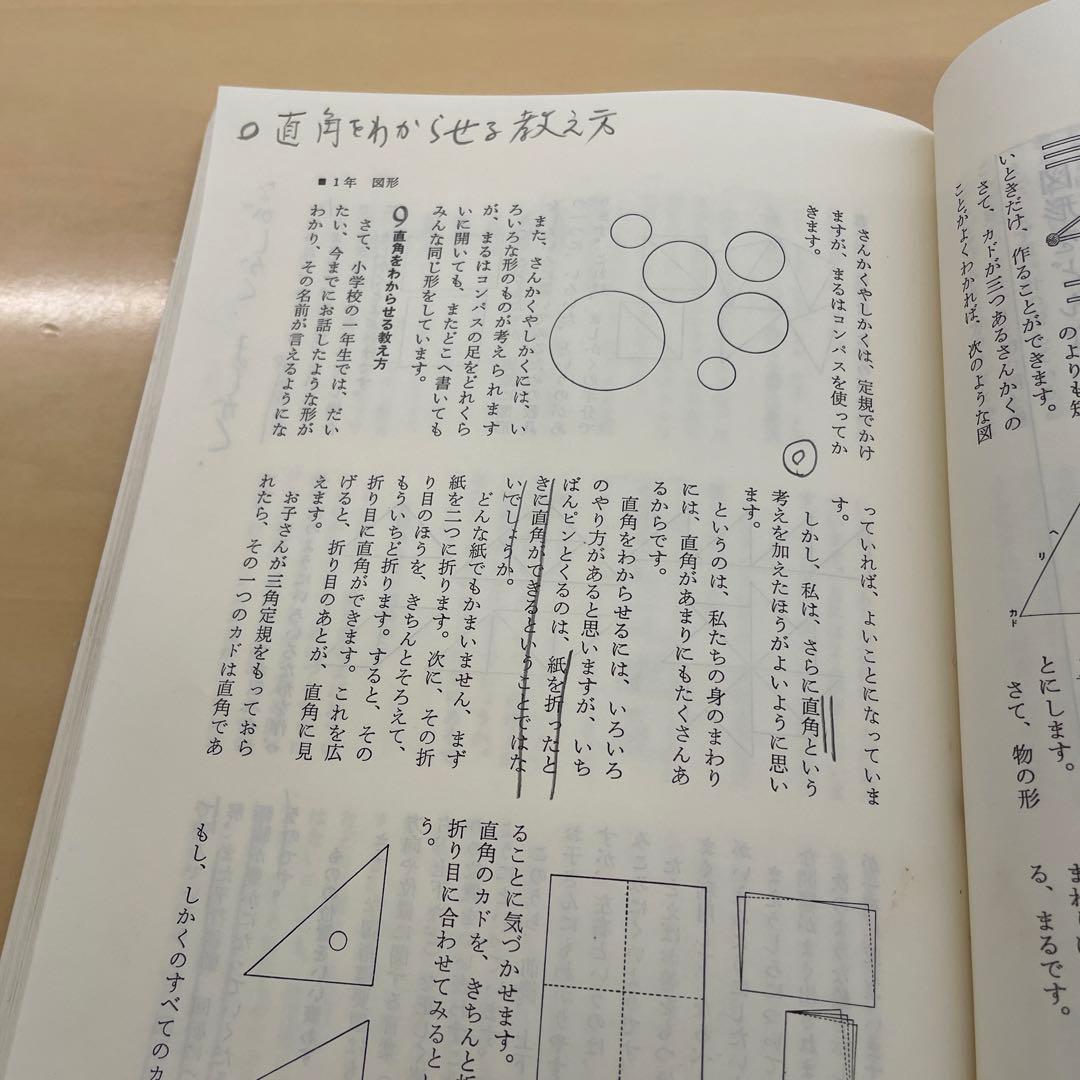 のよりも
いときだけ、作ることができます。
さて、カドが三つあるさんかくの
ことがよくわかれば、次のような図
ヘリ
カド
とにします。
さて、物の形
る、まるです。
○ 直角をわからせる教え方
■1年 図形
さんかくやしかくは、定規でかけ
ますが、まるはコンパスを使ってか
きます。
また、さんかくやしかくには、い
ろいろな形のものが考えられます
が、まるはコンパスの足をどれくら
いに開いても、またどこへ書いても
みんな同じ形をしています。
9 直角をわからせる教え方
さて、小学校の一年生では、だい
たい、今までにお話したような形が
わかり、その名前が言えるようにな
っていれば、よいことになっていま
す。
しかし、私は、さらに直角という
考えを加えたほうがよいように思い
ます。
というのは、私たちの身のまわり
には、直角があまりにもたくさんあ
るからです。
直角をわからせるには、いろいろ
のやり方があると思いますが、いち
ばんピンとくるのは、紙を折ったと
きに直角ができるということではな
いでしょうか。
どんな紙でもかまいません、まず
紙を二つに折ります。次に、その折
り目のほうを、きちんとそろえて、
もういちど折ります。すると、その
折り目に直角ができます。これを広
げると、折り目のあとが、直角に見
えます。
お子さんが三角定規をもっておら
れたら、その一つのカドは直角であ
ることに気づかせます。
直角のカドを、きちんと折
折り目に合わせてみると
う。
もし、しかくのすべてのカ